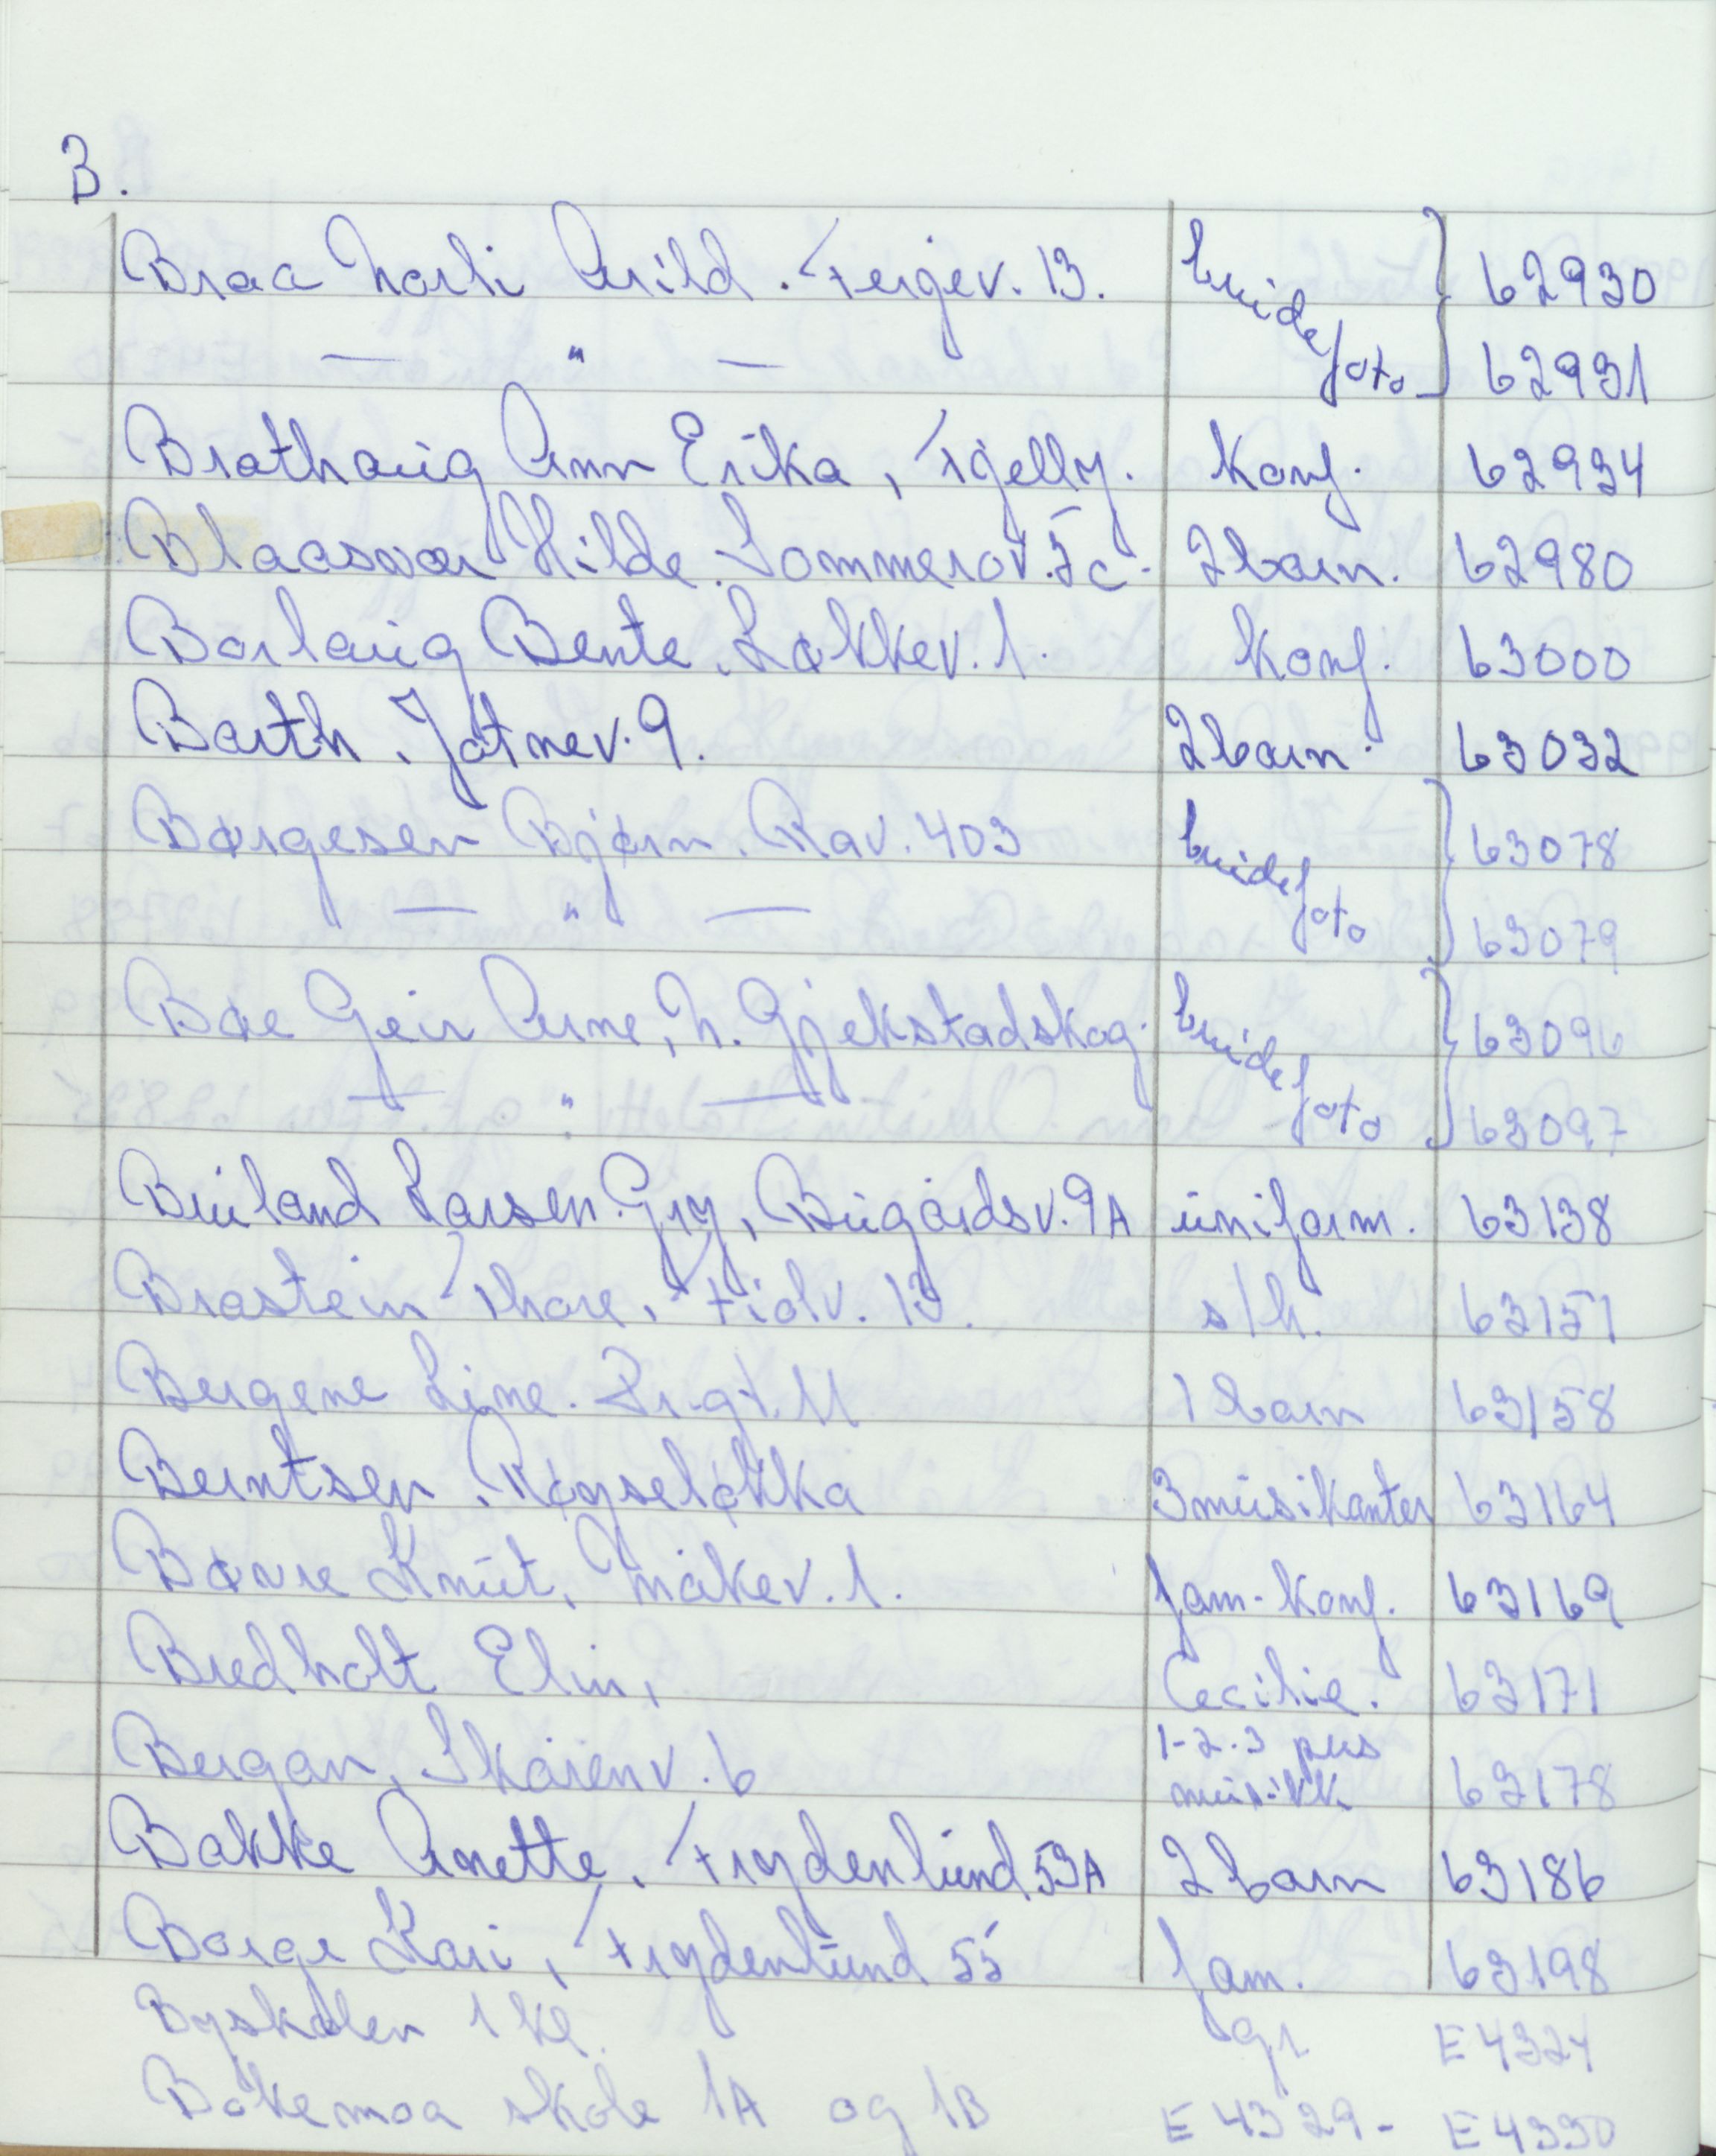 B.
Braa Marli Arild. Fergev. 13. brude foto 62930
— " — 62931
Brathaug Ann Erika, Fjelly. Konf. 62934
Blaasvær Hilde. Sommerov. 5c. 2 barn. 62980
Borlaug Bente. Løkkev. 1. Konf. 63000
Barth. Jotnev. 9. 2 barn. 63032
Børgesen Bjørn. Rav. 403 brude foto 63078
— " — 63079
Bøe Geir Arne, N. Gjekstadskog. brude foto 63096
— " — 63097
Bruland Larsen Gry, Bugårdsv. 9A uniform. 63138
Brastein Thore, Fiolv. 13. s/h. 63151
Bergene Line. Pr.gt. 11 1 barn 63158
Berntsen. Røyseløkka 3 musikanter 63164
Bøvre Knut, Måkev. 1. fam-konf. 63169
Bredholt Elin, Cecilie. 63171
Bergan, Skårenv. 6 1-2-3 pers musikk 63178
Bakke Anette. Frydenlund 53A 2 barn 63186
Borge Kari, Frydenlund 55 fam. 63198
Byskolen 1 kl. gr E4324
Bøkemoa skole 1A og 1B E4329- E4330